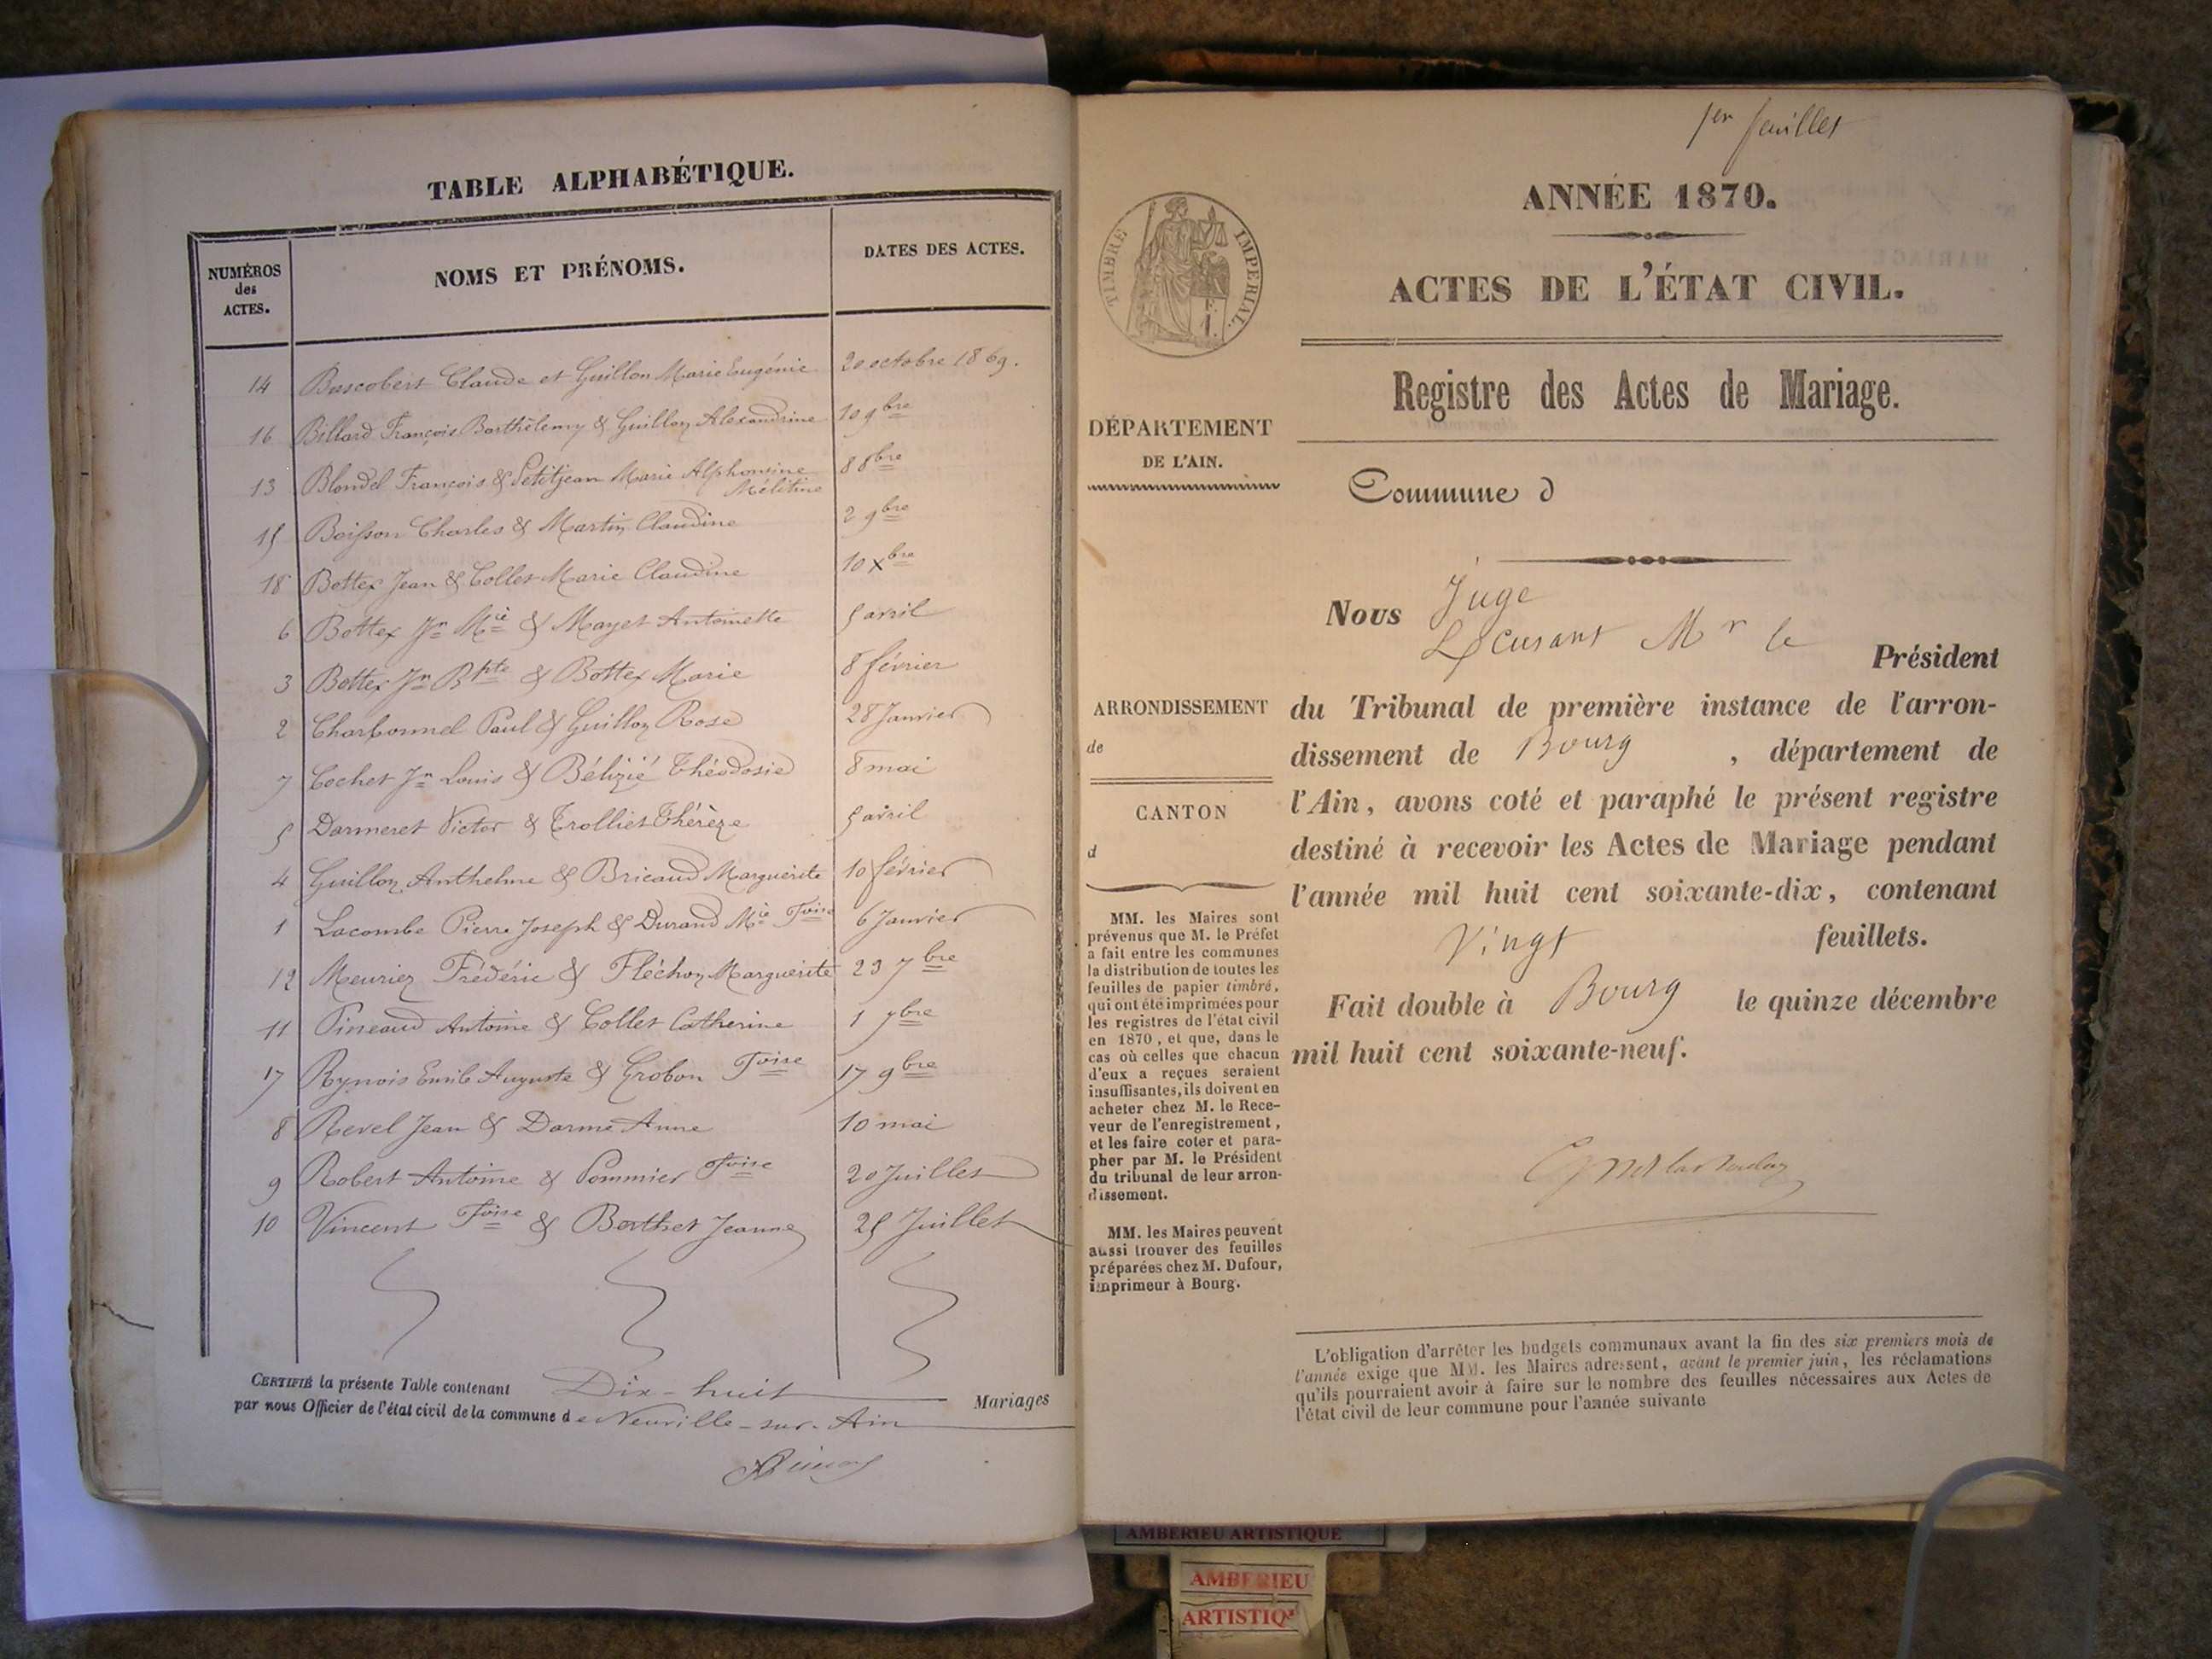 TABLE ALPHABÉTIQUE.
NUMÉROS
des
ACTES.
NOMS ET PRÉNOMS.
DATES DES ACTES.
14 Bascobert Claude et Guillon Marie Eugénie 20 octobre 1869.
16 Billard François Barthélemy & Guillon Alexandrine 10 9bre
13 Blondel François & Petitjean Marie Alphonsine Mélitine 8 8bre
15 Boisson Charles & Martin Claudine 2 9bre
18 Bottex Jean & Collet Marie Claudine 10 Xbre
6 Bottex Jn Mie & Mayet Antoinette 5 avril
3 Bottex Jn Bpte & Bottex Marie 8 février
2 Charbonnel Paul & Guillon Rose 28 Janvier
7 Cochet Jn Louis & Bélizié Théodosie 8 mai
5 Darmeret Victor & Trolliet Thérèze 5 avril
4 Guillon Anthelme & Bricaud Marguerite 10 février
1 Lacombe Pierre Joseph & Durand Mie Foise 6 Janvier
12 Meuriez Frédéric & Fléchon Marguerite 29 7bre
11 Pineaud Antoine & Collet Catherine 1 7bre
17 Rynois Emile Auguste & Grobon Foise 17 9bre
8 Revel Jean & Darme Anne 10 mai
9 Robert Antoine & Pommier Foise 20 Juillet
10 Vincent Foise & Berthet Jeanne 25 Juillet
CERTIFIÉ la présente Table contenant Dix-huit Mariages
par nous Officier de l'état civil de la commune de Neuville-sur-Ain
1er feuillet
ANNÉE 1870.
ACTES DE L'ÉTAT CIVIL.
Registre des Actes de Mariage.
TIMBRE IMPÉRIAL.
F.
1.
DÉPARTEMENT
DE L'AIN.
ARRONDISSEMENT
de
CANTON
d
MM. les Maires sont
prévenus que M. le Préfet
a fait entre les communes
la distribution de toutes les
feuilles de papier timbré,
qui ont été imprimées pour
les registres de l'état civil
en 1870, et que, dans le
cas où celles que chacun
d'eux a reçues seraient
insuffisantes, ils doivent en
acheter chez M. le Rece-
veur de l'enregistrement,
et les faire coter et para-
pher par M. le Président
du tribunal de leur arron-
dissement.
MM. les Maires peuvent
aussi trouver des feuilles
préparées chez M. Dufour,
imprimeur à Bourg.
Commune d
Nous Juge
Mr le Président
du Tribunal de première instance de l'arron-
dissement de Bourg , département de
l'Ain, avons coté et paraphé le présent registre
destiné à recevoir les Actes de Mariage pendant
l'année mil huit cent soixante-dix, contenant
Vingt feuillets.
Fait double à Bourg le quinze décembre
mil huit cent soixante-neuf.
L'obligation d'arrêter les budgets communaux avant la fin des six premiers mois de
l'année exige que MM. les Maires adressent, avant le premier juin, les réclamations
qu'ils pourraient avoir à faire sur le nombre des feuilles nécessaires aux Actes de
l'état civil de leur commune pour l'année suivante
AMBERIEU ARTISTIQUE
AMBERIEU
ARTISTIQ